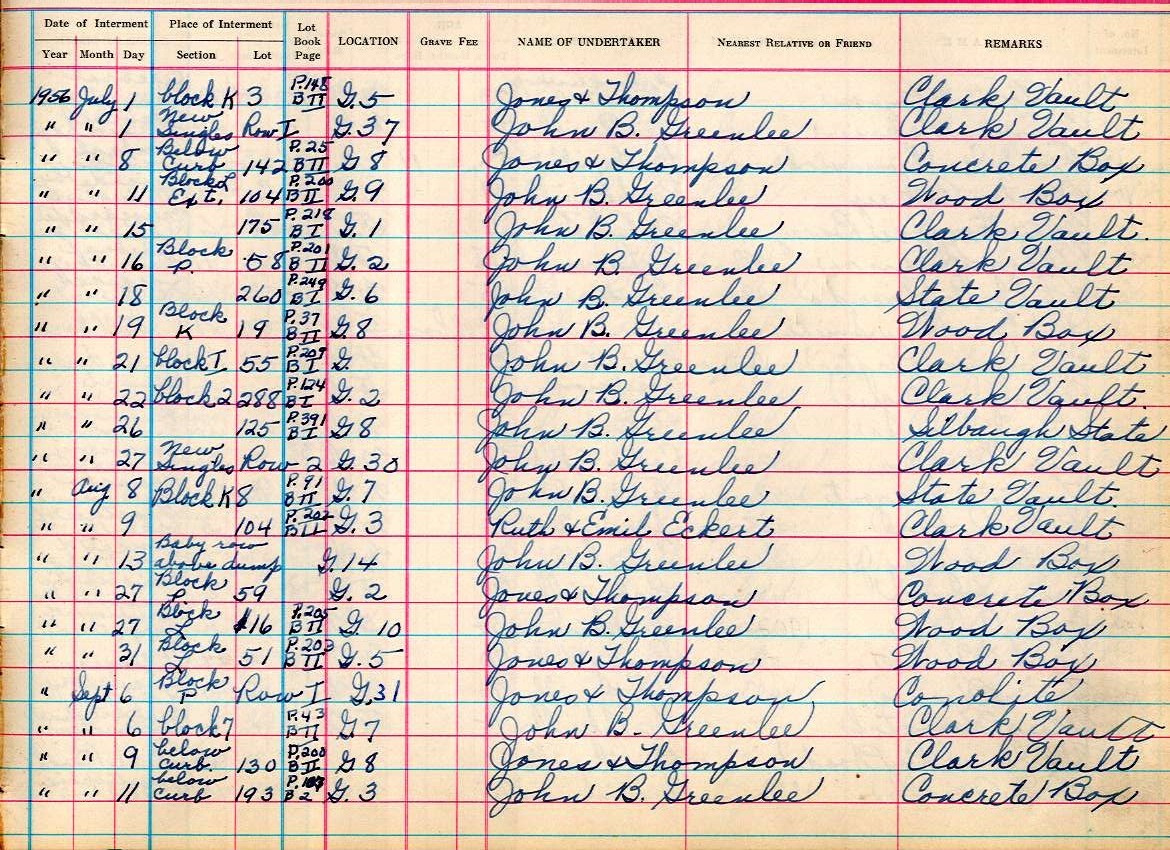 Date of Interment Place of Interment Lot Book Page LOCATION GRAVE FEE NAME OF UNDERTAKER NEAREST RELATIVE OR FRIEND REMARKS
Year Month Day Section Lot
1956 July 1 block K 3 P.148 B II G.5 Jones & Thompson Clark Vault
" " 1 New Singles Row I G.37 John B. Greenlee Clark Vault
" " 8 Below Curb 142 P.25 B II G 8 Jones & Thompson Concrete Box
" " 11 Block L Ext. 104 P.200 B II G.9 John B. Greenlee Wood Box
" " 15 175 P.218 B I G.1 John B. Greenlee Clark Vault.
" " 16 Block P. 58 P.201 B II G.2 John B. Greenlee Clark Vault
" " 18 260 P.249 B I G.6 John B. Greenlee State Vault
" " 19 Block K 19 P.37 B II G.8 John B. Greenlee Wood Box
" " 21 block I 55 B I G. John B. Greenlee Clark Vault
" " 22 block 2 288 P.124 B I G.2 John B. Greenlee Clark Vault.
" " 26 125 P.391 B I G 8 John B. Greenlee Silbaugh State
" " 27 New Singles Row 2 G.30 John B. Greenlee Clark Vault
" Aug 8 Block K 8 P.91 B II G.7 John B. Greenlee State Vault.
" " 9 104 P.202 B II G.3 Ruth & Emil Eckert Clark Vault
" " 13 Baby row above dump G.14 John B. Greenlee Wood Box
" " 27 Block 59 G.2 Jones & Thompson Concrete Box
" " 27 Block 16 P.205 B II G.10 John B. Greenlee Wood Box
" " 31 Block 51 P.203 B II G.5 Jones & Thompson Wood Box
" Sept 6 Block P Row I G.31 Jones & Thompson Conolite
" " 6 block 7 P.43 B II G 7 John B. Greenlee Clark Vault
" " 9 below curb. 130 P.200 B II G 8 Jones & Thompson Clark Vault
" " 11 below curb 193 B 2 G.3 John B. Greenlee Concrete Box